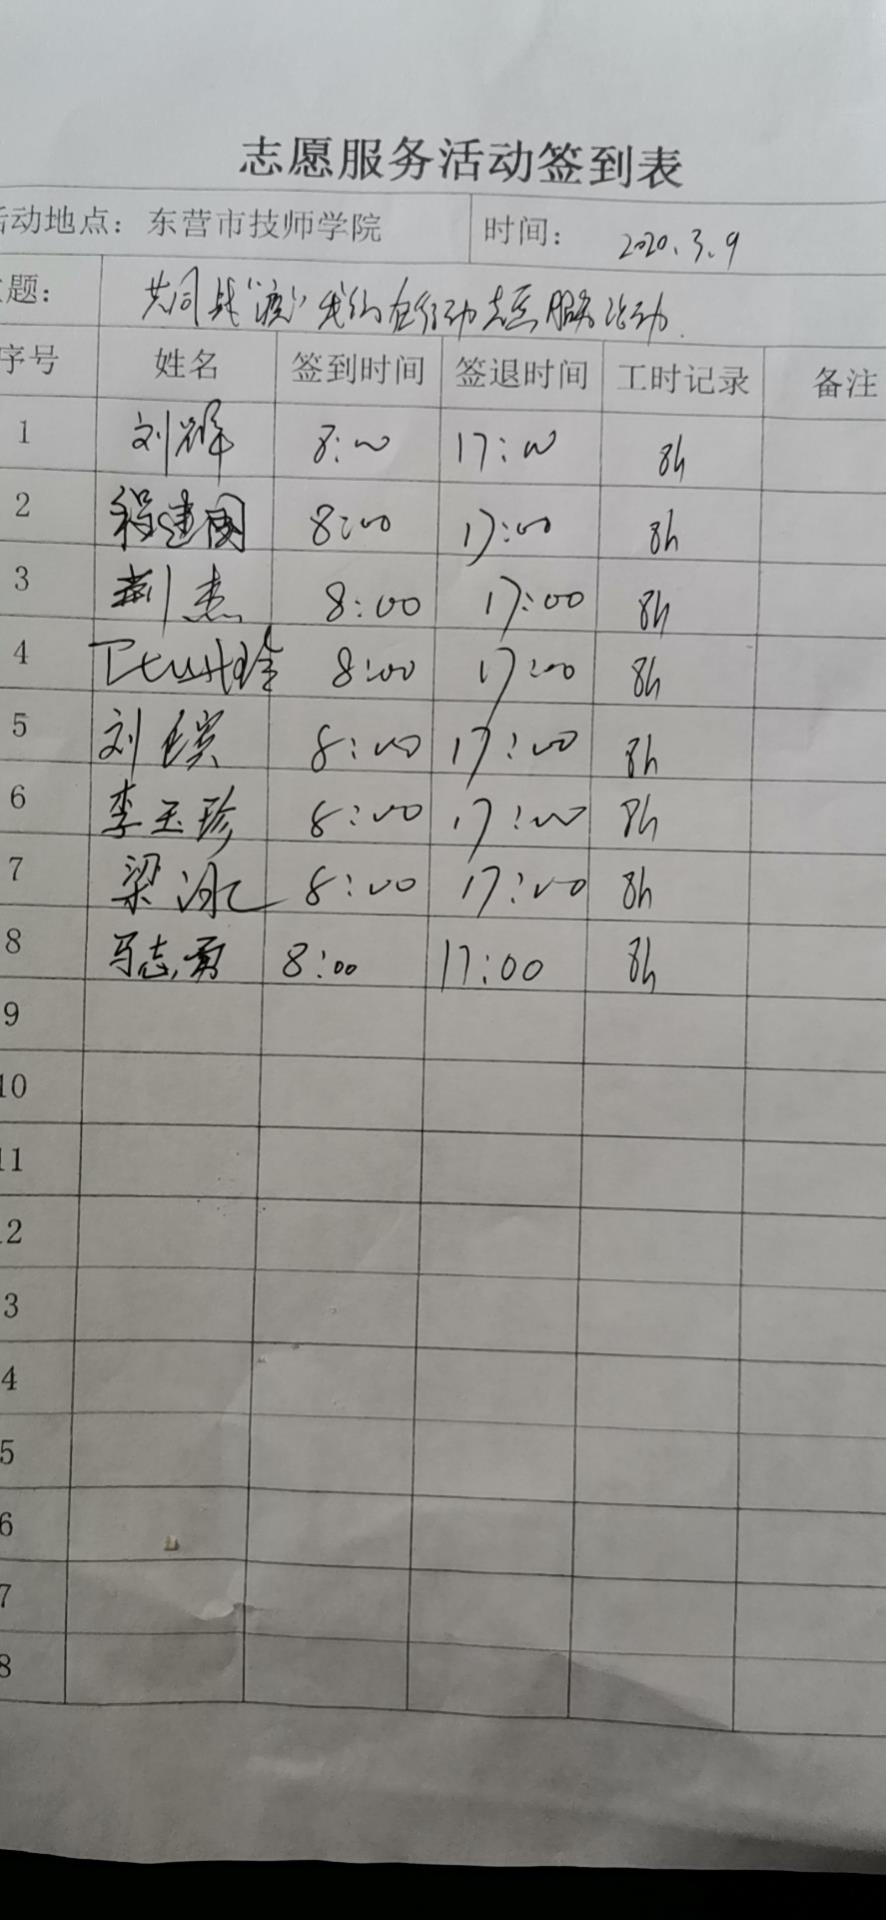 志愿服务活动签到表
活动地点：东营市技师学院 时间：2020.3.9
题： 共同战“疫” 我们在行动志愿服务活动
序号 姓名 签到时间 签退时间 工时记录 备注
1 刘辉 8:00 17:00 8h
2 程建国 8:00 17:00 8h
3 荆杰 8:00 17:00 8h
4 8:00 17:00 8h
5 刘 8:00 17:00 8h
6 李玉珍 8:00 17:00 8h
7 梁冰 8:00 17:00 8h
8 马志勇 8:00 17:00 8h
9
10
11
12
3
4
5
6
7
8